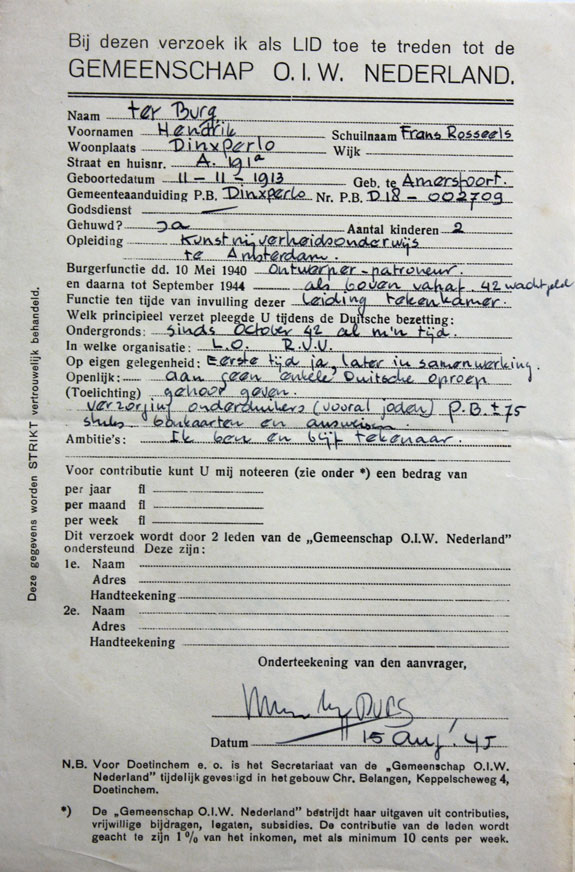 Bij dezen verzoek ik als LID toe te treden tot de
GEMEENSCHAP O.I.W. NEDERLAND.
Naam ter Burg
Voornamen Hendrik Schuilnaam Frans Rosseels
Woonplaats Dinxperlo Wijk
Straat en huisnr. A. 191a
Geboortedatum 11-11-1913 Geb. te Amersfoort.
Gemeenteaanduiding P.B. Dinxperlo Nr. P.B. D18-002709
Godsdienst —
Gehuwd? ja Aantal kinderen 2
Opleiding Kunstnijverheidsonderwijs
te Amsterdam.
Burgerfunctie dd. 10 Mei 1940 Ontwerper-patroneur.
en daarna tot September 1944 als boven vanaf 42 wachtgeld
Functie ten tijde van invulling dezer leiding tekenkamer.
Welk principieel verzet pleegde U tijdens de Duitsche bezetting:
Ondergronds: sinds October 42 al m'n tijd.
In welke organisatie: L.O. R.V.V.
Op eigen gelegenheid: Eerste tijd ja, later in samenwerking.
Openlijk: aan geen enkele Duitsche oproep
(Toelichting) gehoor geven.
verzorging onderduikers (vooral joden) P.B. ± 75
stuks bonkaarten en ausweisen.
Ambitie's: Ik ben en blijf tekenaar.
Voor contributie kunt U mij noteeren (zie onder *) een bedrag van
per jaar fl
per maand fl
per week fl
Dit verzoek wordt door 2 leden van de „Gemeenschap O.I.W. Nederland”
ondersteund Deze zijn:
1e. Naam
Adres
Handteekening
2e. Naam
Adres
Handteekening
Onderteekening van den aanvrager,
Burg
Datum 15 aug. '45
N.B. Voor Doetinchem e. o. is het Secretariaat van de „Gemeenschap O.I.W.
Nederland” tijdelijk gevestigd in het gebouw Chr. Belangen, Keppelscheweg 4,
Doetinchem.
*) De „Gemeenschap O.I.W. Nederland” bestrijdt haar uitgaven uit contributies,
vrijwillige bijdragen, legaten, subsidies. De contributie van de leden wordt
geacht te zijn 1% van het inkomen, met als minimum 10 cents per week.
Deze gegevens worden STRIKT vertrouwelijk behandeld.